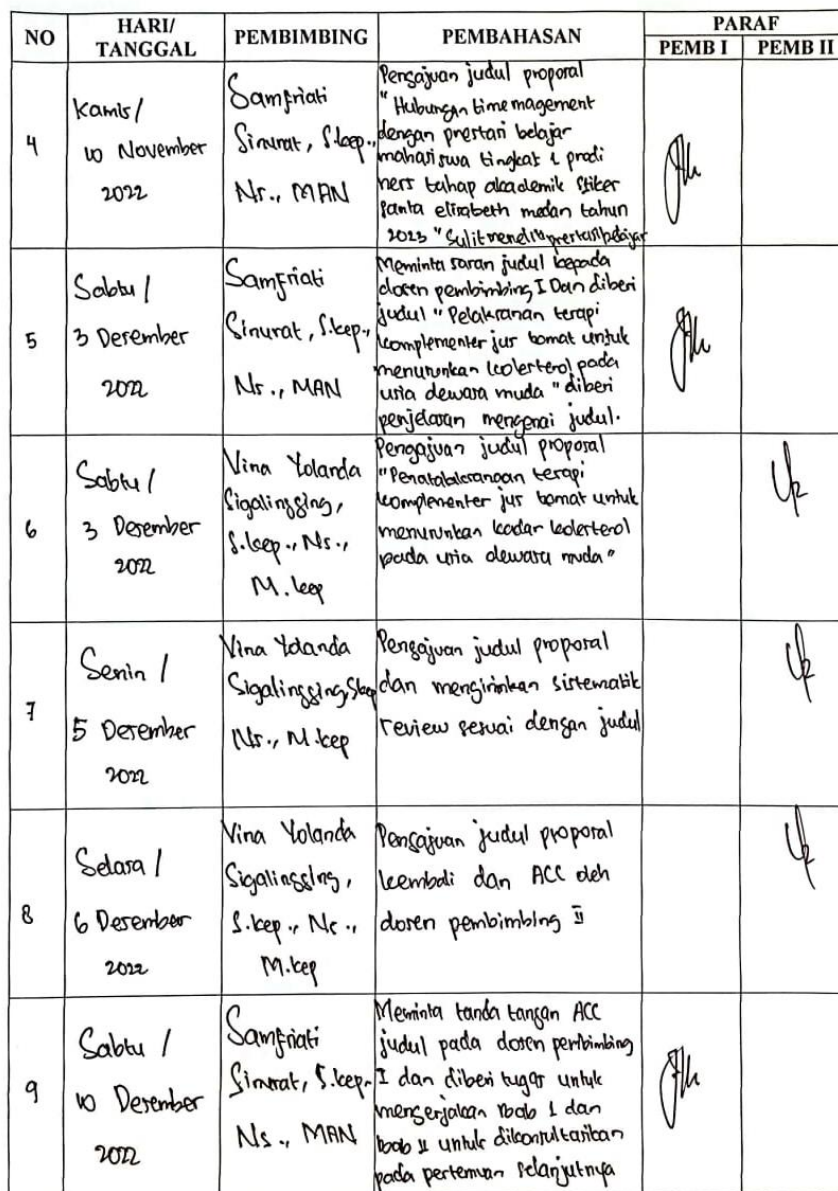 NO
HARI/
TANGGAL
PEMBIMBING
PEMBAHASAN
PARAF
PEMB I
PEMB II
4
Kamis/
10 November
2022
Samfriati
Sinurat, S.kep.,
Ns., MAN
Pengajuan judul proposal
"Hubungan time magement
dengan prestasi belajar
mahasiswa tingkat 1 prodi
ners tahap akademik Stikes
santa elisabeth medan tahun
2023 "Sulit meneliti prestasi belajar
5
Sabtu /
3 Desember
2022
Samfriati
Sinurat, S.kep.,
Ns., MAN
Meminta saran judul kepada
dosen pembimbing I Dan diberi
judul "Pelaksanaan terapi
komplementer jus tomat untuk
menurunkan kolesterol pada
usia dewasa muda" diberi
penjelasan mengenai judul.
6
Sabtu /
3 Desember
2022
Vina Yolanda
Sigalingging,
S.kep., Ns.,
M.kep
Pengajuan judul proposal
"Penatalaksanaan terapi
komplementer jus tomat untuk
menurunkan kadar kolesterol
pada usia dewasa muda"
7
Senin /
5 Desember
2022
Vina Yolanda
Sigalingging, Skep
Ns., M.kep
Pengajuan judul proposal
dan mengirimkan sistematik
review sesuai dengan judul
8
Selasa /
6 Desember
2022
Vina Yolanda
Sigalingging,
S.kep., Ns.,
M.kep
Pengajuan judul proposal
kembali dan ACC oleh
dosen pembimbing II
9
Sabtu /
10 Desember
2022
Samfriati
Sinurat, S.kep.,
Ns., MAN
Meminta tanda tangan ACC
judul pada dosen pembimbing
I dan diberi tugas untuk
mengerjakan bab 1 dan
bab II untuk dikonsultasikan
pada pertemuan selanjutnya